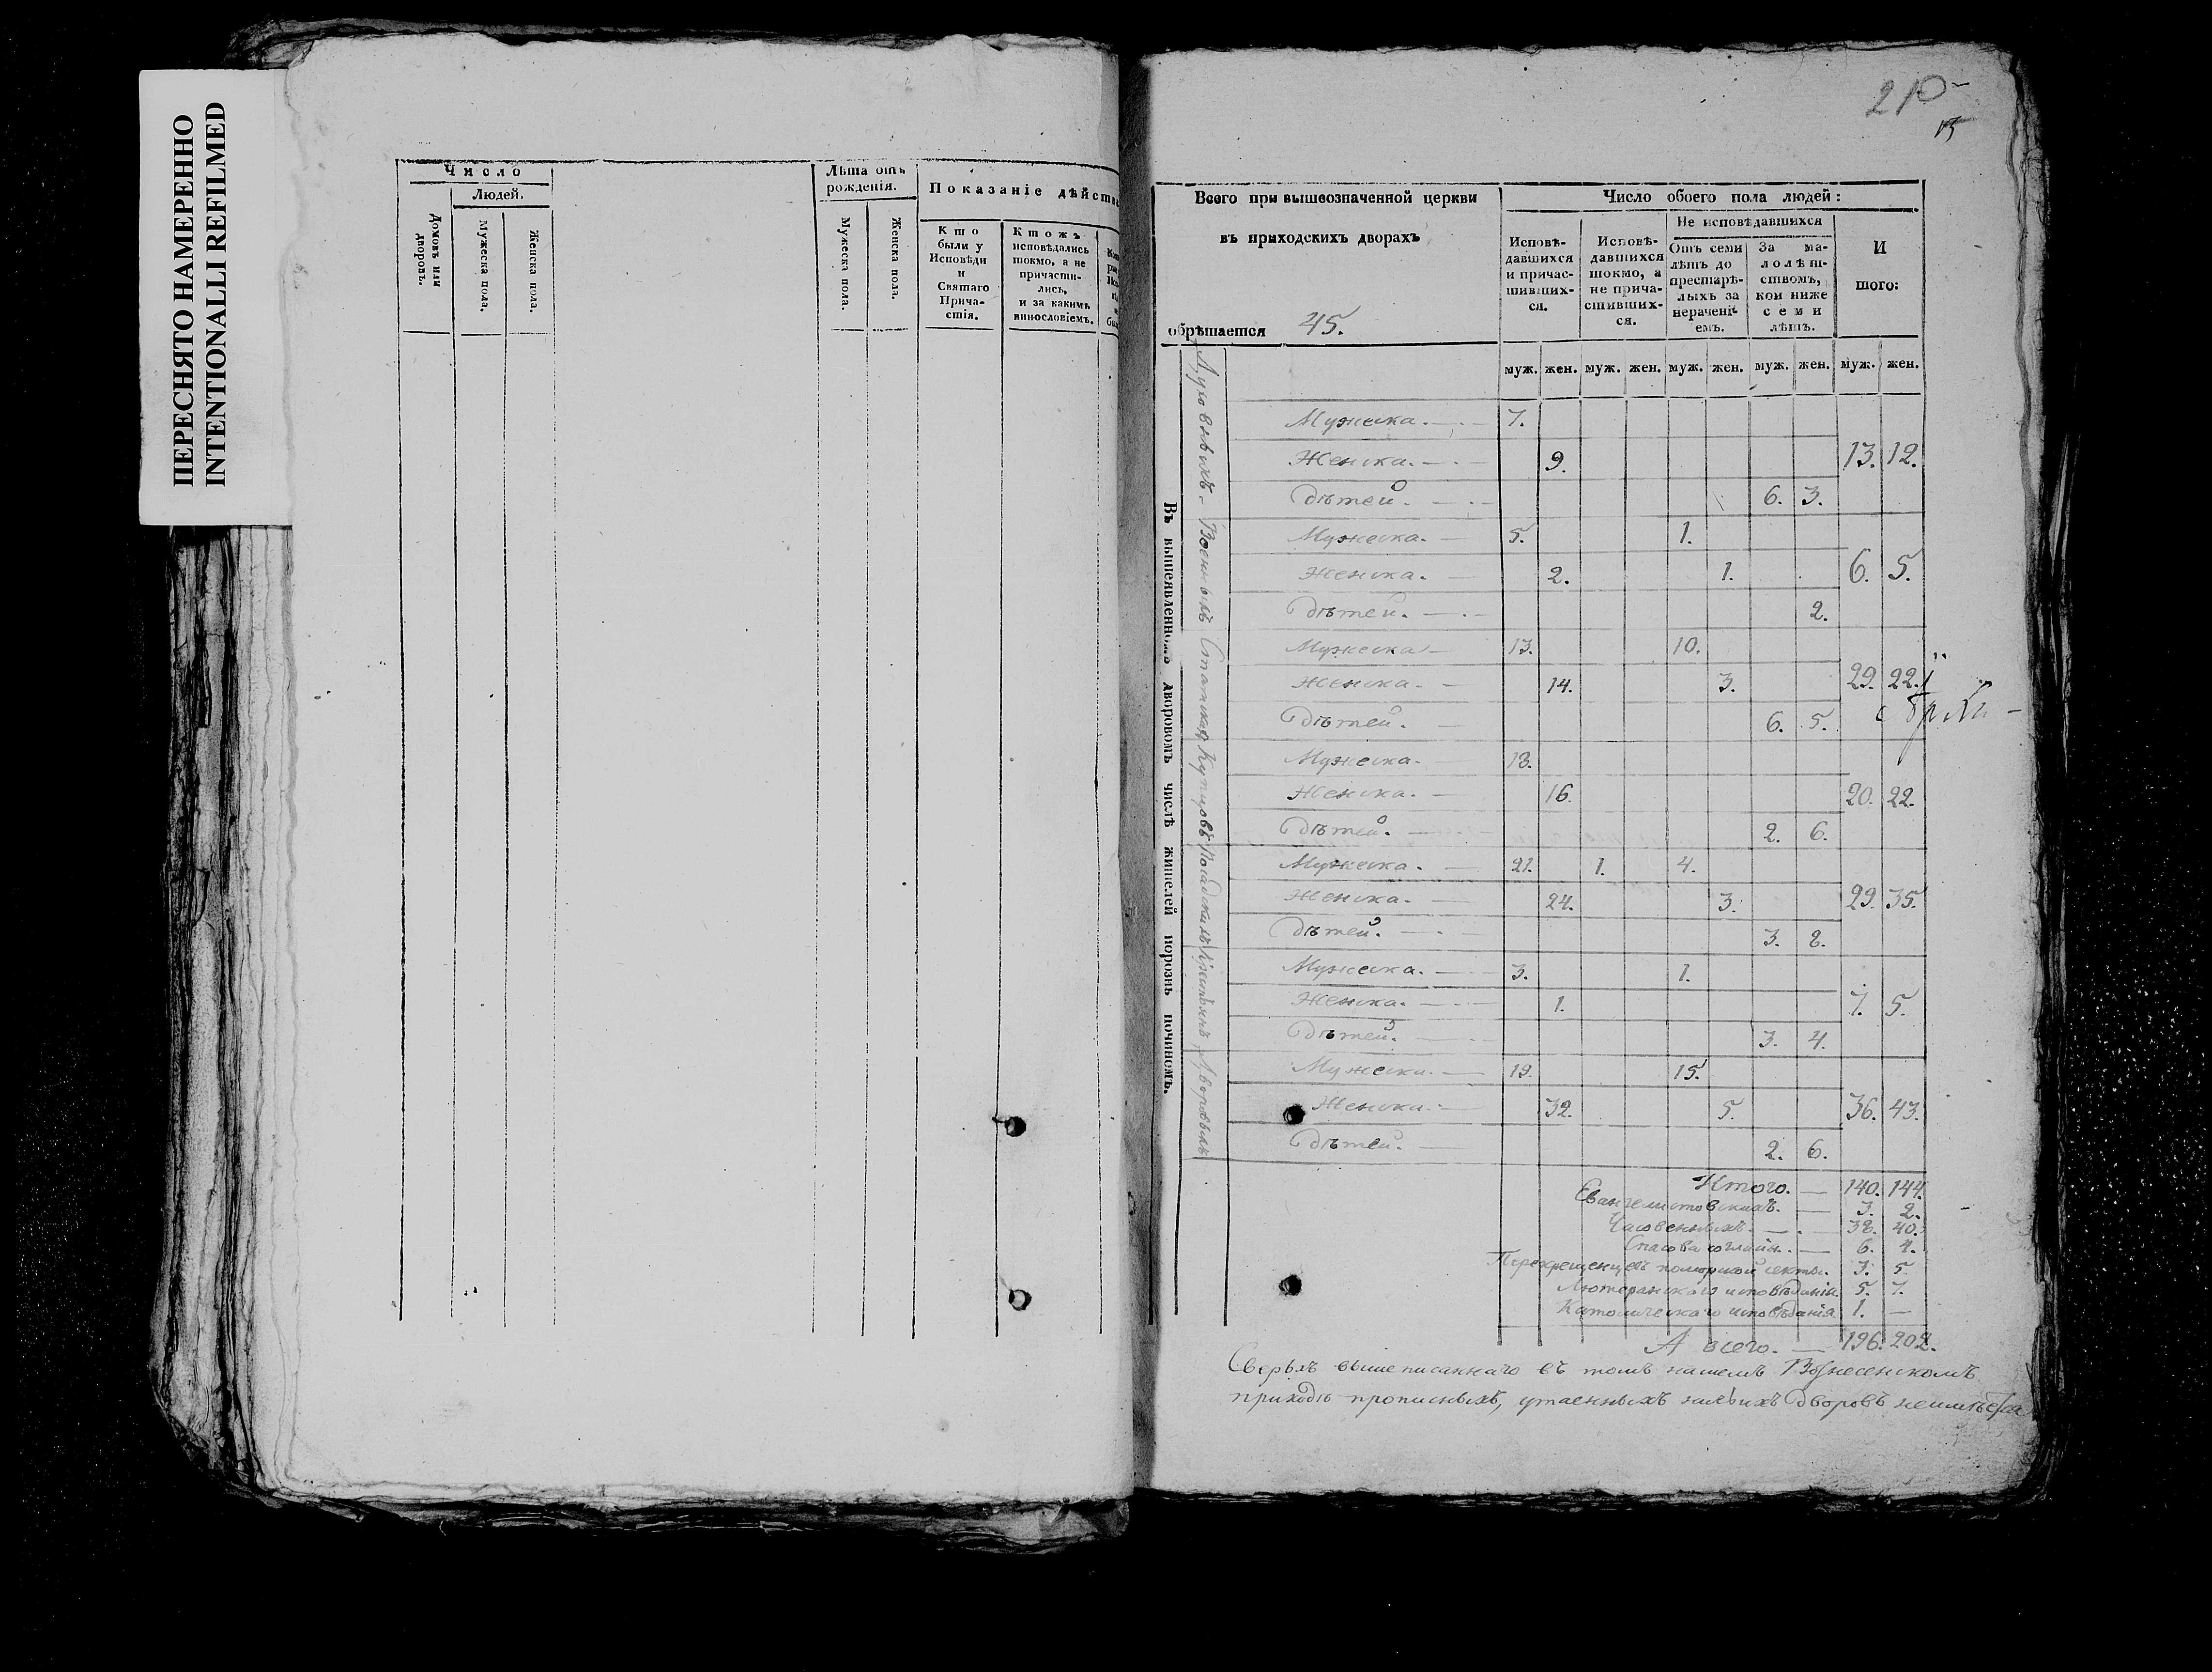 ПЕРЕСНЯТО НАМЕРЕННО
INTENTIONALLI REFILMED
Число
Людей.
Домовъ или дворовъ.
Мужеска пола.
Женска пола.
Лѣта отъ рожденія.
Мужеска пола.
Женска пола.
Показаніе дѣйств
Кто были у Исповѣди и Святаго Причастія.
Ктожъ исповѣдались токмо, а не причастились, и за какимъ винословіемъ.
210
Всего при вышеозначенной церкви
въ приходскихъ дворахъ
обрѣтается 45.
Число обоего пола людей:
Исповѣдавшихся и причастившихся.
Исповѣдавшихся токмо, а не причастившихся.
Не исповѣдавшихся
Отъ семи лѣтъ до престарѣлыхъ за нераченіемъ.
За малолѣтствомъ, кои ниже семи лѣтъ.
И того:
муж. жен. муж. жен. муж. жен. муж. жен. муж. жен.
Въ вышеявленномъ дворовомъ числѣ жителей порознь починомъ.
Духовныхъ.
Военныхъ
Купцовъ
Мужеска. 7.
Женска. 9. 13. 12.
Дѣтей. 6. 3.
Мужеска. 5. 1.
Женска. 2. 1. 6. 5.
Дѣтей. 2.
Мужеска 13. 10.
Женска. 14. 3. 29. 22.
Дѣтей. 6. 5.
Мужеска. 18.
Женска. 16. 20. 22.
Дѣтей. 2. 6.
Мужеска. 21. 1. 4.
Женска. 24. 3. 29. 35.
Дѣтей. 3. 8.
Мужеска. 3. 1.
Женска. 1. 7. 5.
Дѣтей. 3. 4.
Мужеска. 19. 15.
Женска. 32. 5. 36. 43.
Дѣтей. 2. 6.
Итого. 140. 144.
Евангелистовскихъ. 3. 2.
Часовенныхъ. 38. 40.
Спасова согласія. 6. 4.
Перекрещенцевъ поморской секты. 3. 5.
Лютеранскаго исповѣданія. 5. 7.
Католическаго исповѣданія 1. —
А всего. 196. 202.
Сверьхъ вышеписаннаго въ томъ нашемъ Вознесенскомъ
приходѣ прописныхъ, утаенныхъ дворовъ неимѣется